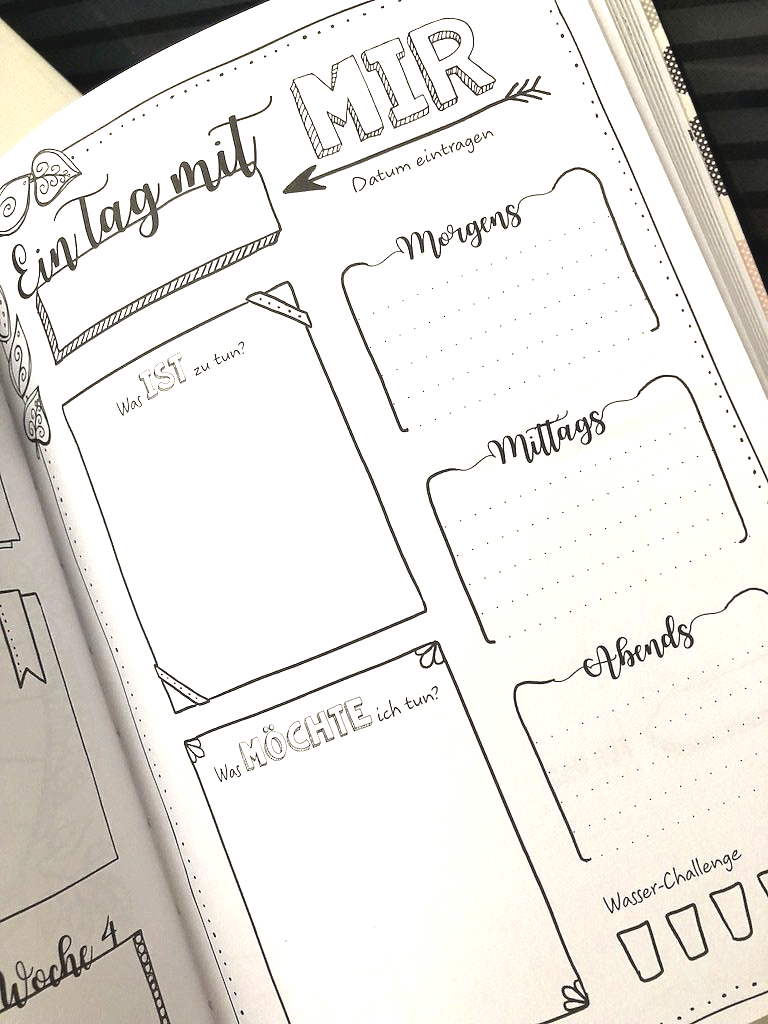 Ein Tag mit
MIR
Datum eintragen
Was IST zu tun?
Was MÖCHTE ich tun?
Morgens
Mittags
Abends
Wasser-Challenge
Woche 4